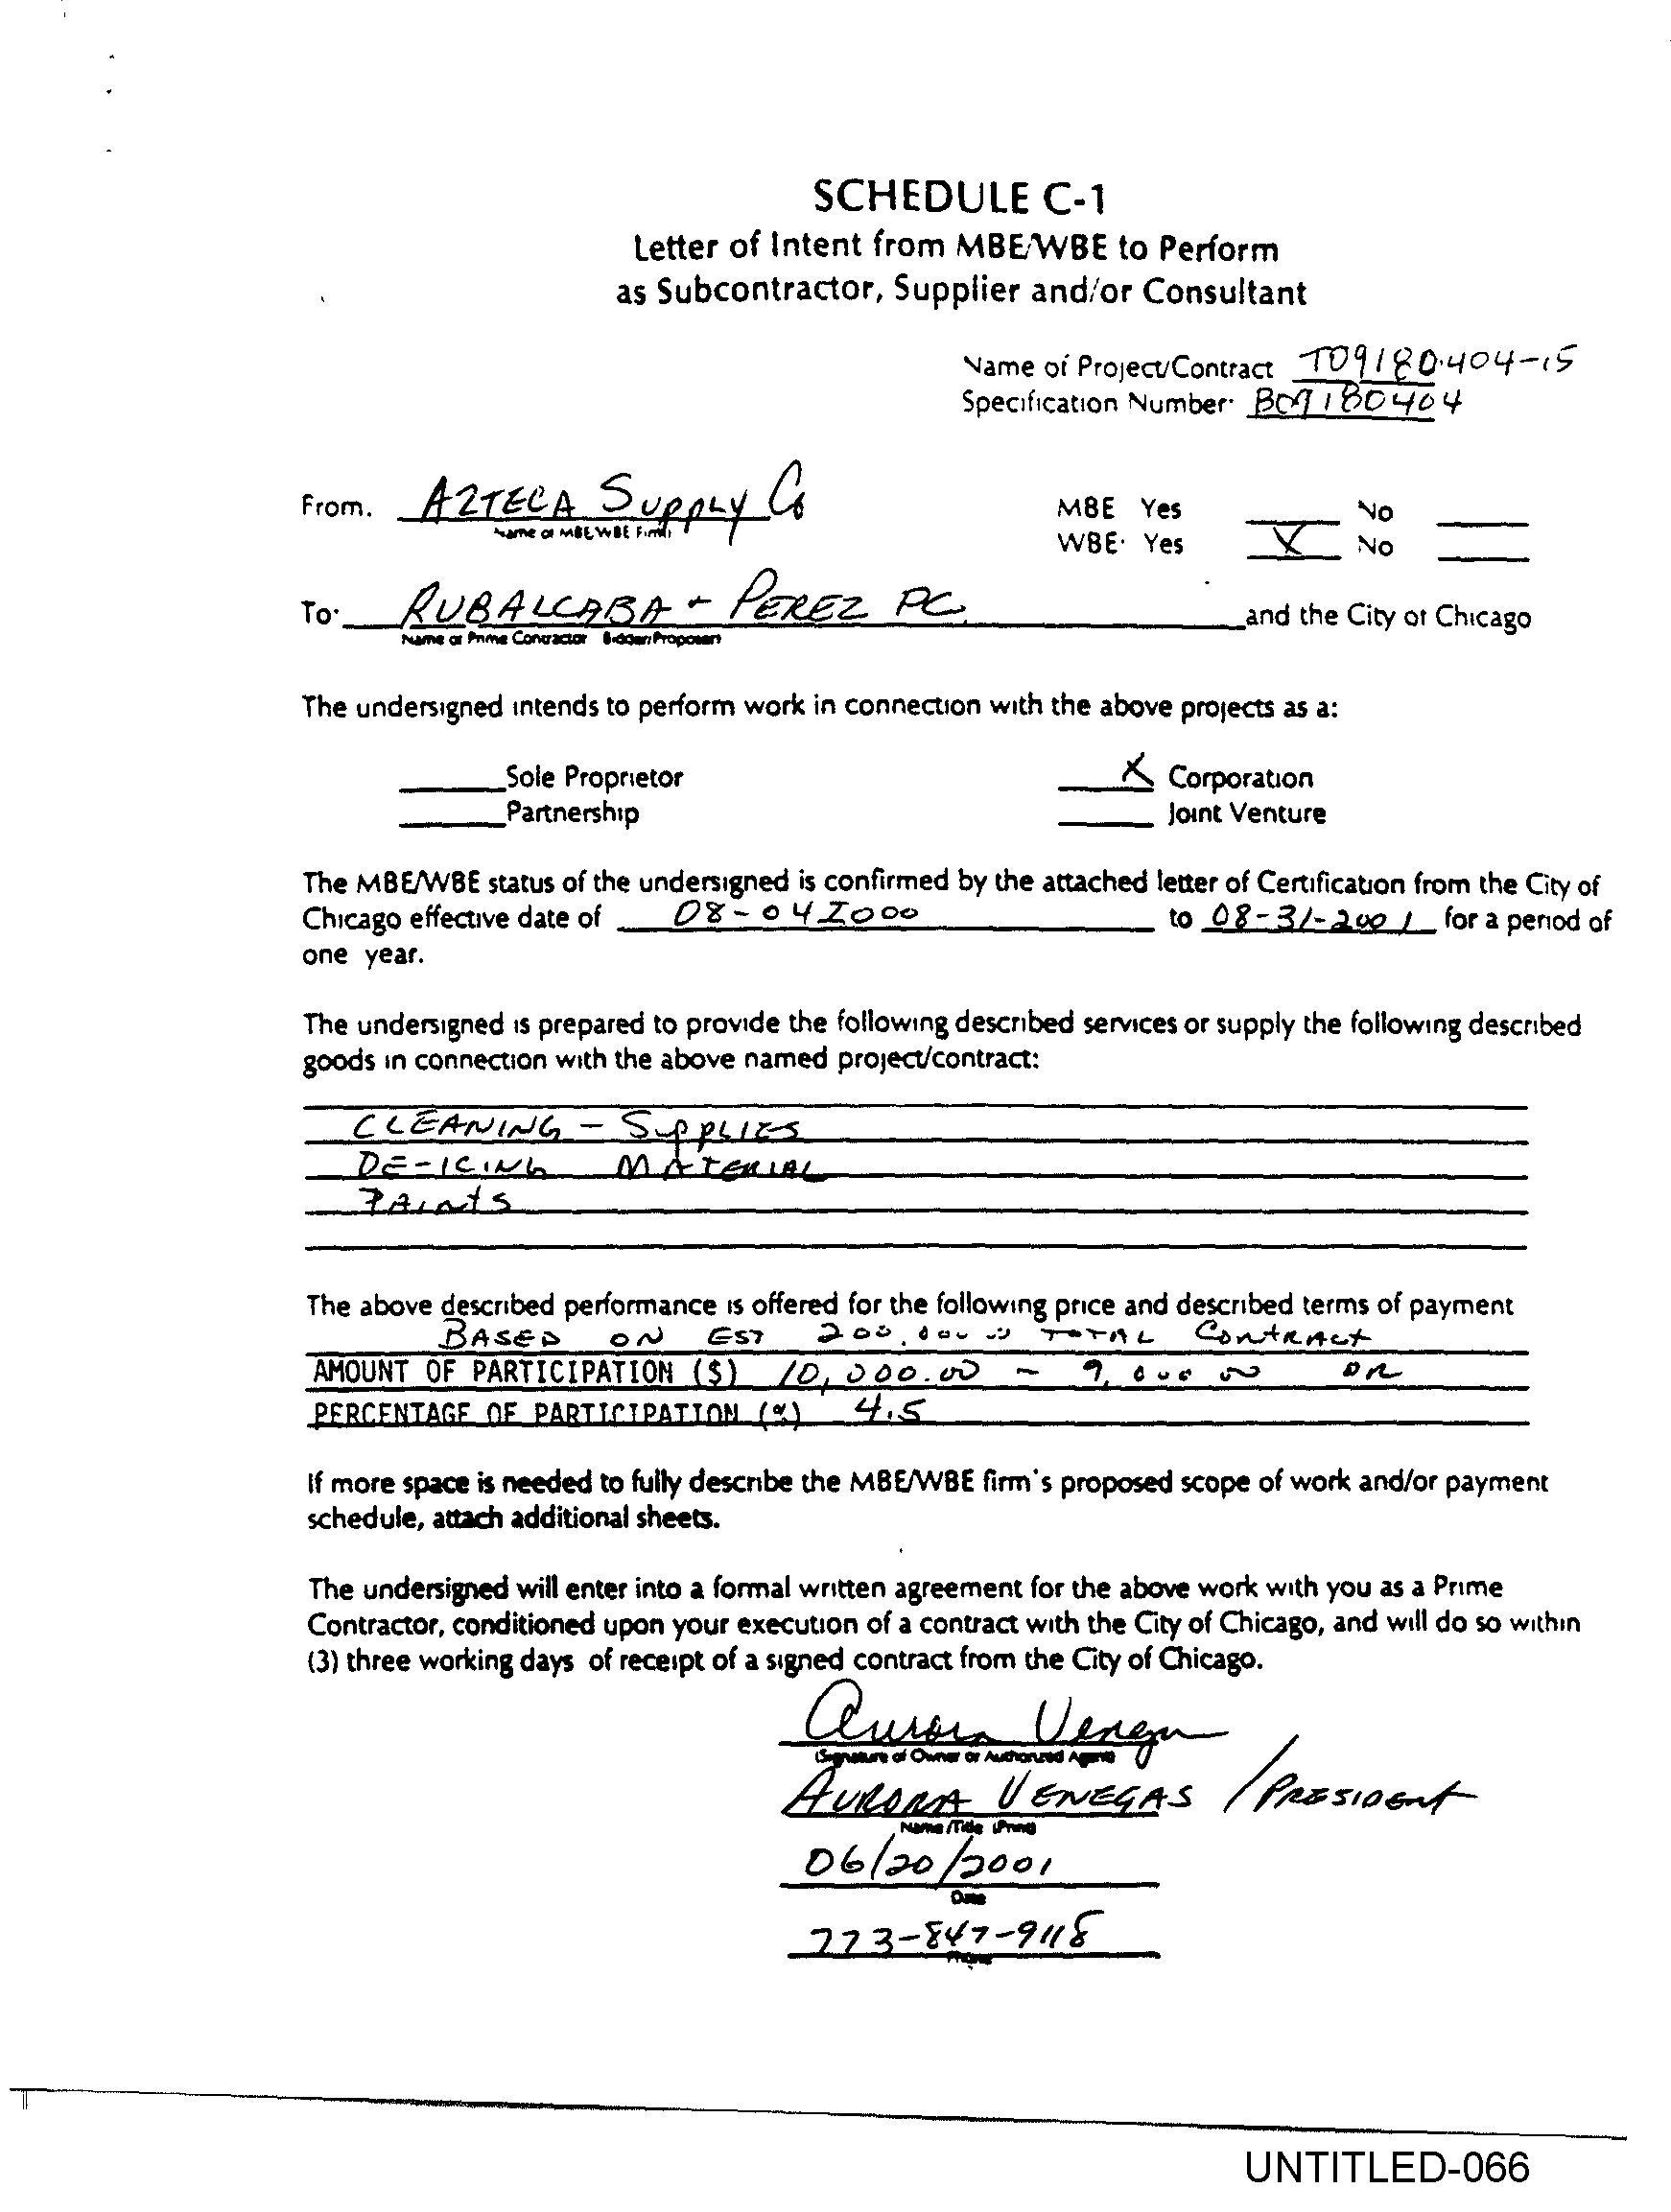 SCHEDULE C-1
Letter of Intent from MBE/WBE to Perform
as Subcontractor, Supplier and/or Consultant
Name of Project/Contract T09180404-15
Specification Number: B09180404
From. AZTECA Supply Co MBE Yes No
Name of MBE/WBE Firm
WBE: Yes X No
To: RUBALCABA + PEREZ PC. and the City of Chicago
Name of Prime Contractor Bidder/Proposer
The undersigned intends to perform work in connection with the above projects as a:
Sole Proprietor X Corporation
Partnership Joint Venture
The MBE/WBE status of the undersigned is confirmed by the attached letter of Certification from the City of
Chicago effective date of to 08-31-2001 for a period of
one year.
The undersigned is prepared to provide the following described services or supply the following described
goods in connection with the above named project/contract:
CLEANING - SUPPLIES
DE-ICING MATERIAL
PAINTS
The above described performance is offered for the following price and described terms of payment
BASED ON EST 200,000 00 TOTAL CONTRACT
AMOUNT OF PARTICIPATION ($) 10,000.00 - 9,000 00 OR
PERCENTAGE OF PARTICIPATION (%) 4.5
If more space is needed to fully describe the MBE/WBE firm's proposed scope of work and/or payment
schedule, attach additional sheets.
The undersigned will enter into a formal written agreement for the above work with you as a Prime
Contractor, conditioned upon your execution of a contract with the City of Chicago, and will do so within
(3) three working days of receipt of a signed contract from the City of Chicago.
Aurora Venegas
(Signature of Owner or Authorized Agent)
AURORA VENEGAS / PRESIDENT
Name/Title (Print)
06/20/2001
Date
773-847-9118
Phone
UNTITLED-066